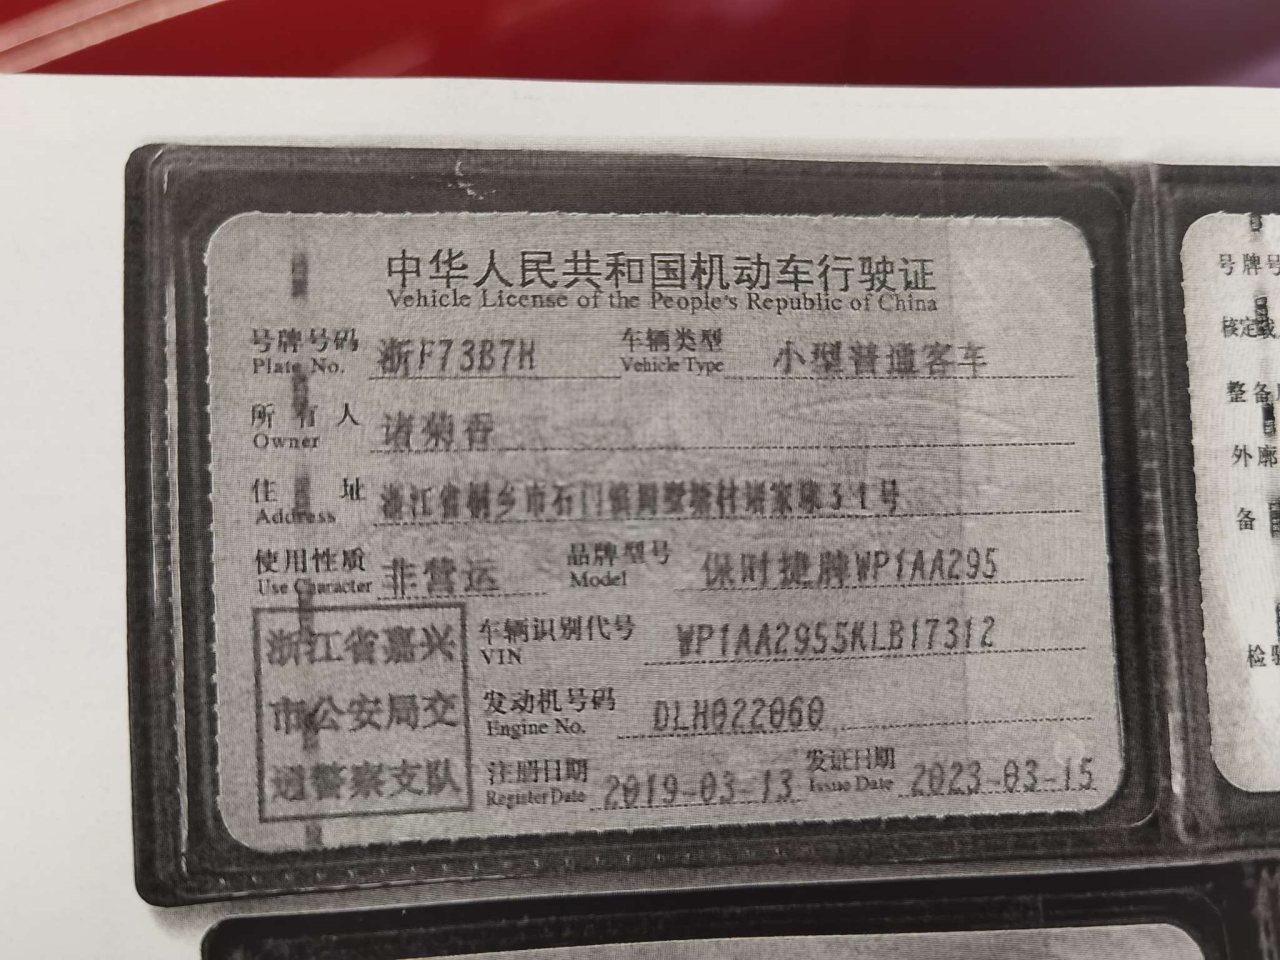 中华人民共和国机动车行驶证
Vehicle License of the People's Republic of China
号牌号码 浙F73B7H 车辆类型 小型普通客车
Plate No. Vehicle Type
所有人 诸菊香
Owner
住址 浙江省桐乡市石门镇周墅塘村诸家埭31号
Address
使用性质 非营运 品牌型号 保时捷牌WP1AA295
Use Character Model
浙江省嘉兴
市公安局交
通警察支队
车辆识别代号 WP1AA2955KLB17312
VIN
发动机号码 DLH022060
Engine No.
注册日期 2019-03-13 发证日期 2023-03-15
Register Date Issue Date
号牌号
核定载
整备
外廓
备
检验